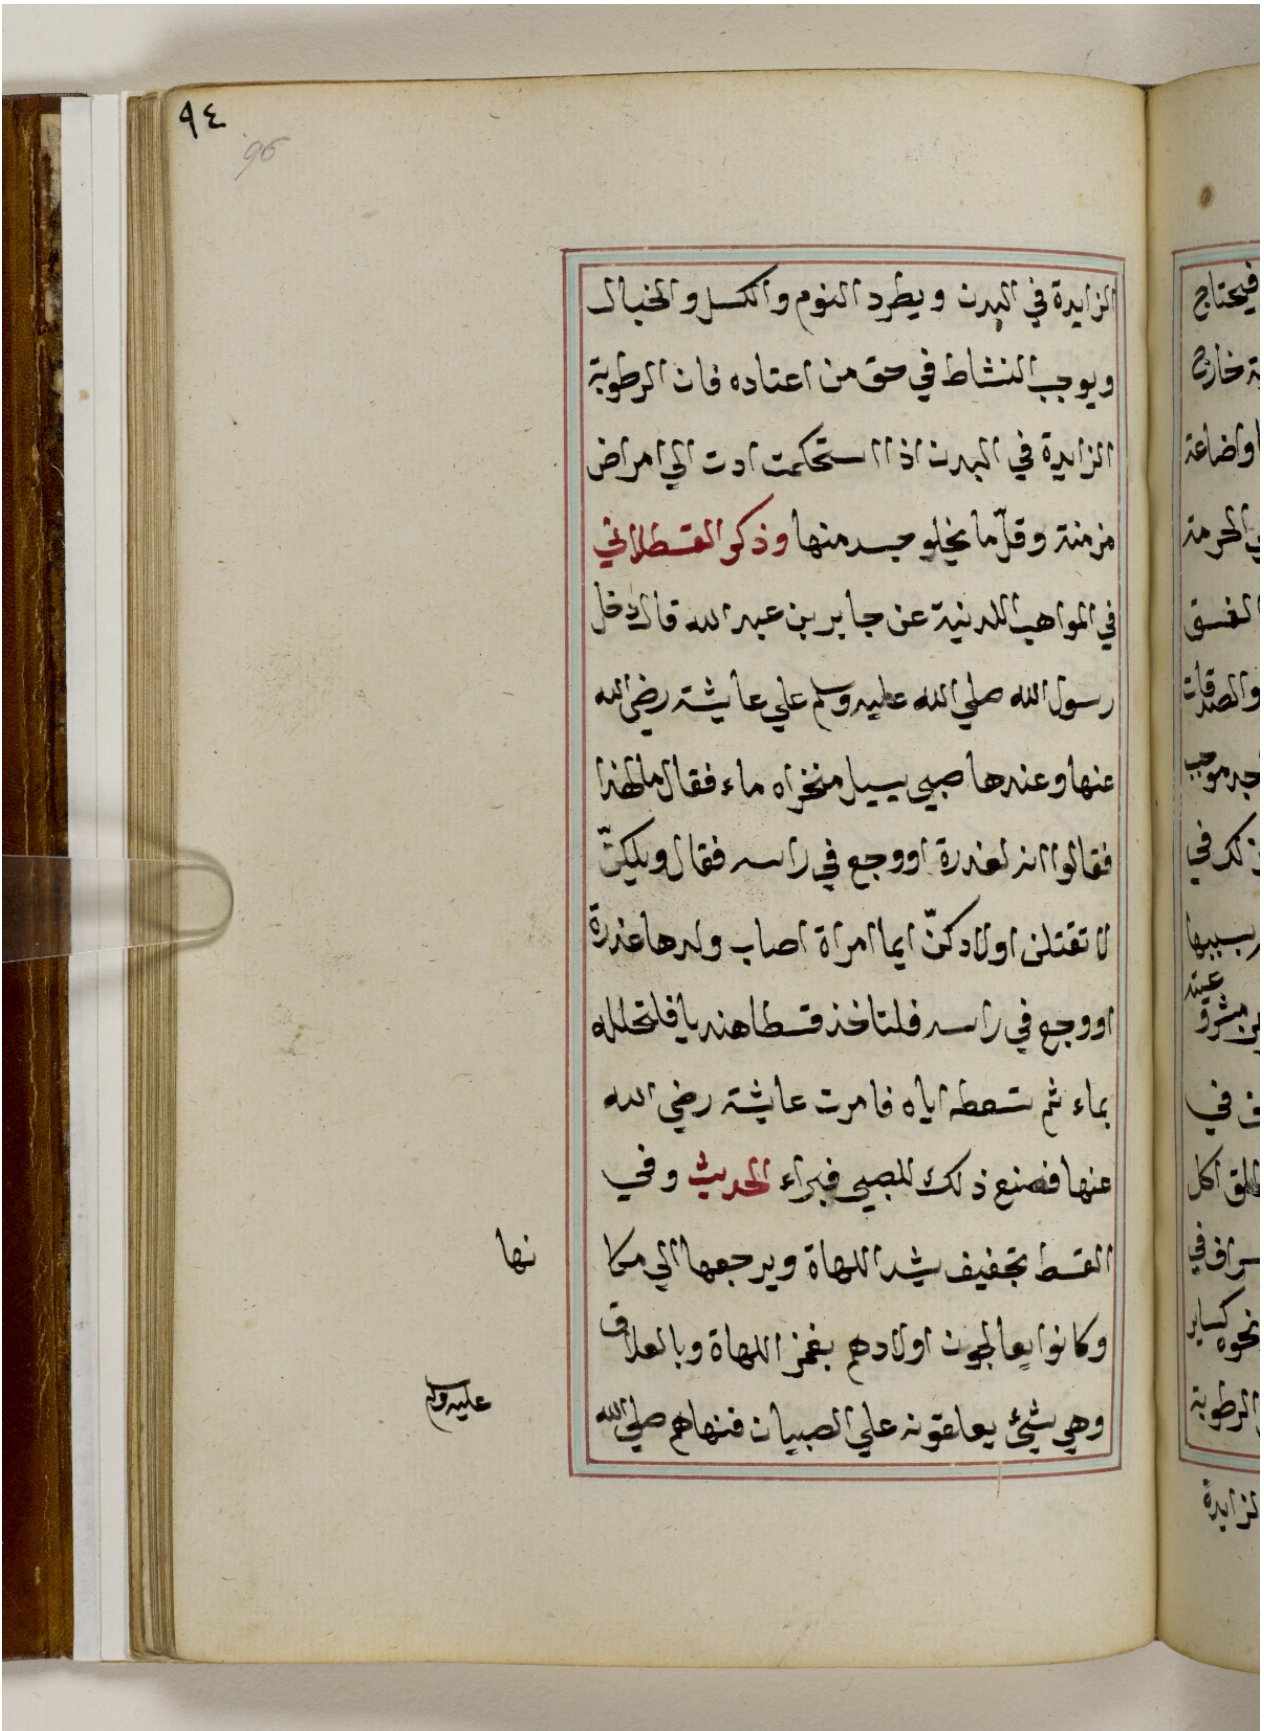 ٩٤
96
الزايدة في البدن ويطرد النوم والكسل والخبال
ويوجب النشاط في حق من اعتاده فان الرطوبة
الزايدة في البدن اذا استحكمت ادت الي امراض
مزمنة وقلّما يخلو جسد منها وذكر القسطلاني
في المواهب اللدنية عن جابر بن عبد الله قال دخل
رسول الله صلي الله عليه وسلم علي عايشة رضي الله
عنها وعندها صبي يسيل منخراه ماء فقال ما لهذا
فقالوا انه لعذرة او وجع في راسه فقال ويلكنّ
لا تقتلن اولادكنّ ايما امراة اصاب ولدها عذرة
او وجع في راسه فلتاخذ قسطا هنديا فلتحلله
بماء ثم تسعطه اياه فامرت عايشة رضي الله
عنها فصنع ذلك للصبي فبراء الحديث وفي
القسط تجفيف يشد اللهاة ويرجعها الي مكا
نها
وكانوا يعالجون اولادهم بغمز اللهاة وبالعلاق
وهي شيئ يعلقونه علي الصبيان فنهاهم صلي الله
عليه وسلم
فيحتاج
خارج
واضاعة
الحرمة
الفسق
والصدقات
موجب
في
بسببها
في
اكل
في
نحوه كساير
الرطوبة
الزايدة